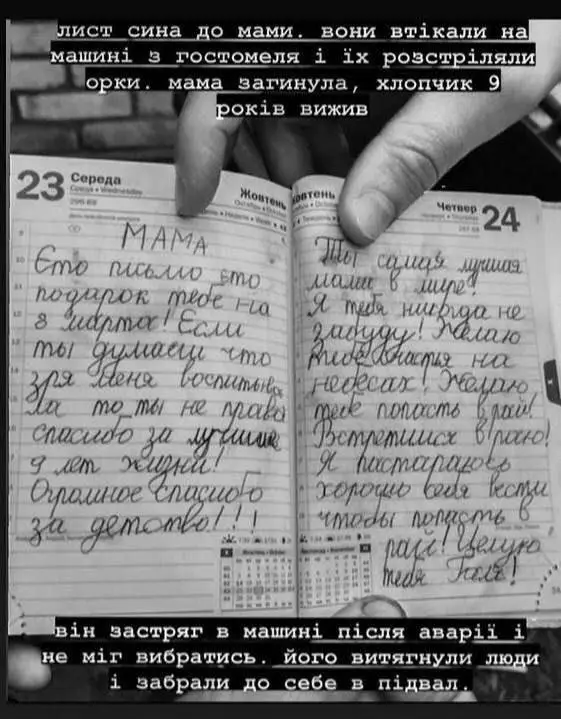 лист сина до мами. вони втікали на
машині з гостомеля і їх розстріляли
орки. мама загинула, хлопчик 9
років вижив
23 Середа
Жовтень
Жовтень
Четвер 24
МАМА
Єто письмо это
подарок тебе на
8 марта! Если
ты думаеш что
зря меня воспитыва
ла то ты не права
спасибо за лучшие
9 лет жизни!
Огромное спасибо
за детство!!!
Ты самая лучшая
мама в мире!
Я тебя никогда не
забуду! Желаю
тибе счастья на
небесах! Желаю
тебе попасть в рай!
Встретимся в раю!
Я пастараюсь
хорошо себя вести
чтобы попасть в
рай! Целую
тебя
він застряг в машині після аварії і
не міг вибратись. його витягнули люди
і забрали до себе в підвал.